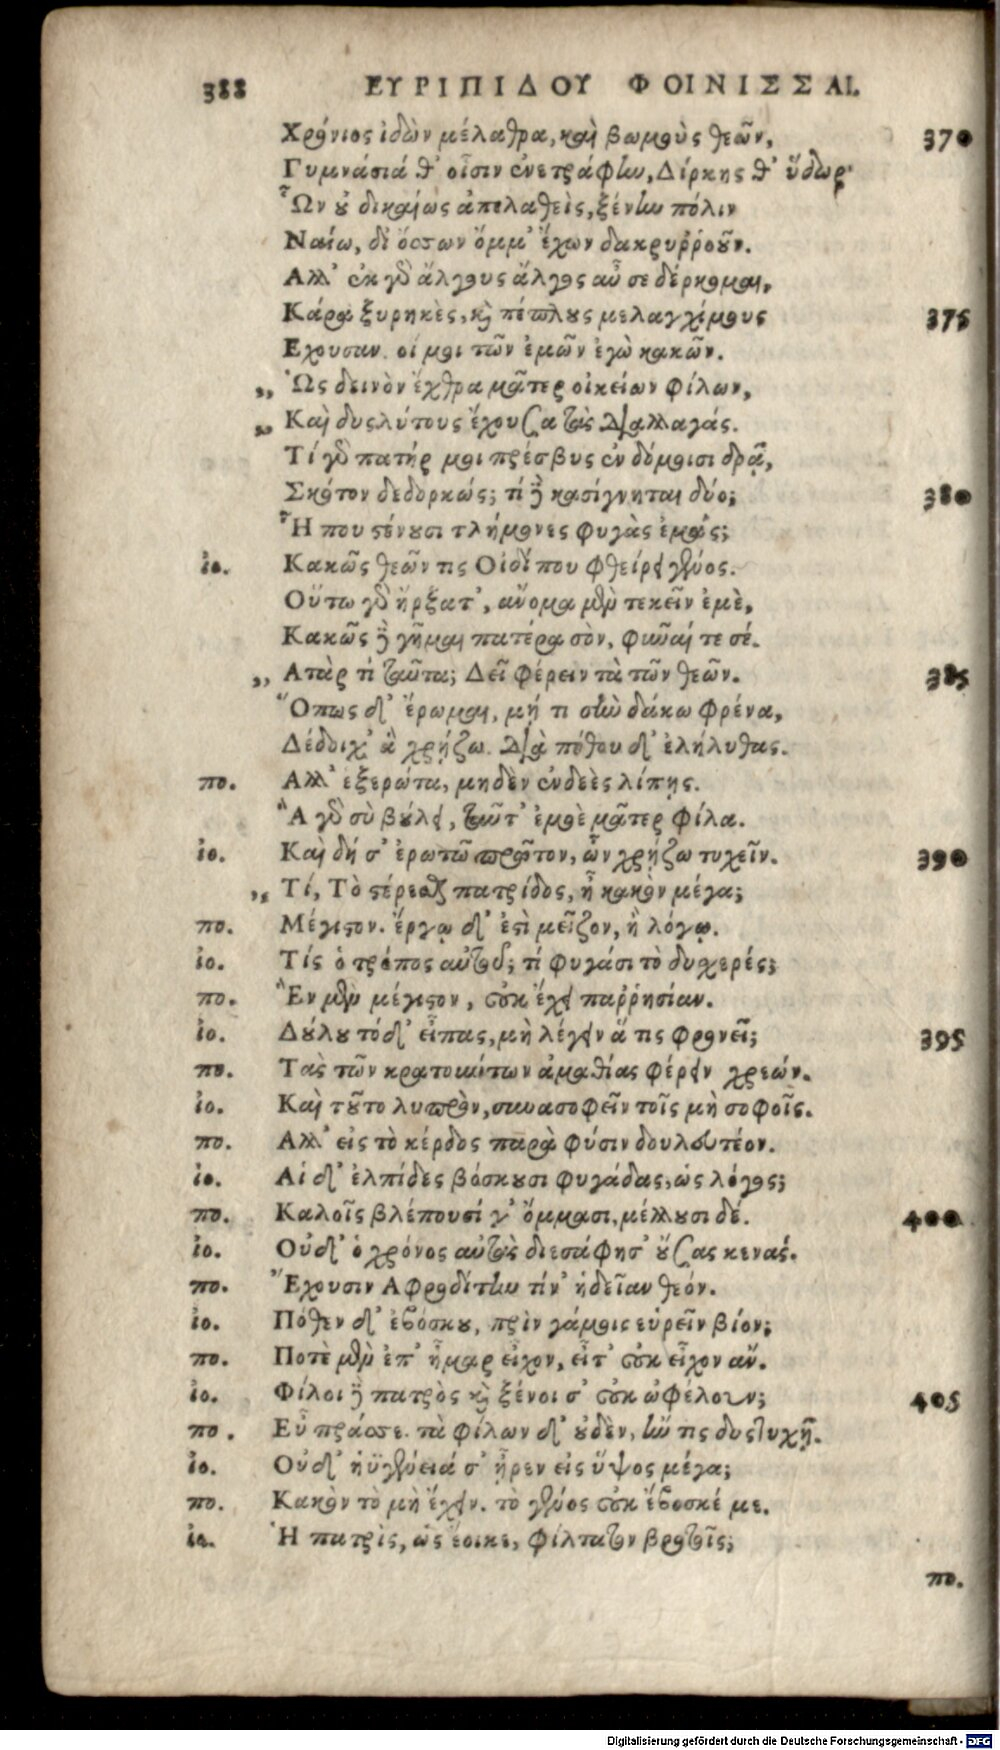 388 ΕΥΡΙΠΙΔΟΥ ΦΟΙΝΙΣΣΑΙ.
Χρόνιος ἰδὼν μέλαθρα, καὶ βωμοὺς θεῶν, 370
Γυμνάσιά θ' οἷσιν ἐνετράφην, Δίρκης θ' ὕδωρ·
Ὧν οὐ δικαίως ἀπελαθεὶς, ξένην πόλιν
Ναίω, δι' ὄσσων ὄμμ' ἔχων δακρυῤῥοοῦν.
Αλλ' ἐκ γὰρ ἄλγους ἄλγος αὖ σε δέρκομαι,
Κάρα ξυρηκὲς, καὶ πέπλους μελαγχίμους 375
Εχουσαν. οἴ μοι τῶν ἐμῶν ἐγὼ κακῶν.
,, Ὡς δεινὸν ἔχθρα μᾶτερ οἰκείων φίλων,
,, Καὶ δυςλύτους ἔχουσα τὰς διαλλαγάς.
Τί γὰρ πατήρ μοι πρέσβυς ἐν δόμοισι δρᾷ,
Σκότον δεδορκώς; τί δὲ κασίγνηται δύο; 380
Ἦ που στένουσι τλήμονες φυγὰς ἐμάς;
ἰο. Κακῶς θεῶν τις Οἰδίπου φθείρει γένος.
Οὕτω γὰρ ἤρξατ', ἄνομα μὲν τεκεῖν ἐμὲ,
Κακῶς δὲ γῆμαι πατέρα σὸν, φῦναί τε σέ.
,, Ατὰρ τί ταῦτα; Δεῖ φέρειν τὰ τῶν θεῶν. 385
Ὅπως δ' ἔρωμαι, μή τι σὴν δάκω φρένα,
Δέδοιχ' ἃ χρῄζω. διὰ πόθου δ' ἐλήλυθας.
πο. Αλλ' ἐξερώτα, μηδὲν ἐνδεὲς λίπῃς.
Ἃ γὰρ σὺ βούλει, ταῦτ' ἐμοὶ μᾶτερ φίλα.
ἰο. Καὶ δή σ' ἐρωτῶ πρῶτον, ὧν χρῄζω τυχεῖν. 390
,, Τί, Τὸ στέρεσθαι πατρίδος, ἦ κακὸν μέγα;
πο. Μέγιστον. ἔργῳ δ' ἐστὶ μεῖζον, ἢ λόγῳ.
ἰο. Τίς ὁ τρόπος αὐτοῦ; τί φυγάσι τὸ δυχερές;
πο. Ἓν μὲν μέγιστον, οὐκ ἔχει παῤῥησίαν.
ἰο. Δούλου τόδ' εἶπας, μὴ λέγειν ἅ τις φρονεῖ; 395
πο. Τὰς τῶν κρατούντων ἀμαθίας φέρειν χρεών.
ἰο. Καὶ τοῦτο λυπρὸν, συνασοφεῖν τοῖς μὴ σοφοῖς.
πο. Αλλ' εἰς τὸ κέρδος παρὰ φύσιν δουλευτέον.
ἰο. Αἱ δ' ἐλπίδες βόσκουσι φυγάδας, ὡς λόγος;
πο. Καλοῖς βλέπουσί γ' ὄμμασι, μέλλουσι δέ. 400
ἰο. Οὐδ' ὁ χρόνος αὐτὰς διεσάφησ' οὔσας κενάς.
πο. Ἔχουσιν Αφροδίτην τίν' ἡδεῖαν θεόν.
ἰο. Πόθεν δ' ἐβόσκου, πρὶν γάμοις εὑρεῖν βίον;
πο. Ποτὲ μὲν ἐπ' ἦμαρ εἶχον, εἶτ' οὐκ εἶχον ἄν.
ἰο. Φίλοι δὲ πατρὸς καὶ ξένοι σ' οὐκ ὠφέλουν; 405
πο. Εὖ πράσσε. τὰ φίλων δ' οὐδὲν, ἤν τις δυςτυχῇ.
ἰο. Οὐδ' ηὑγένειά σ' ᾖρεν εἰς ὕψος μέγα;
πο. Κακὸν τὸ μὴ ἔχειν. τὸ γένος οὐκ ἔβοσκέ με.
ἰο. Ἡ πατρὶς, ὡς ἔοικε, φίλτατον βροτοῖς;
πο.
Digitalisierung gefördert durch die Deutsche Forschungsgemeinschaft - DFG